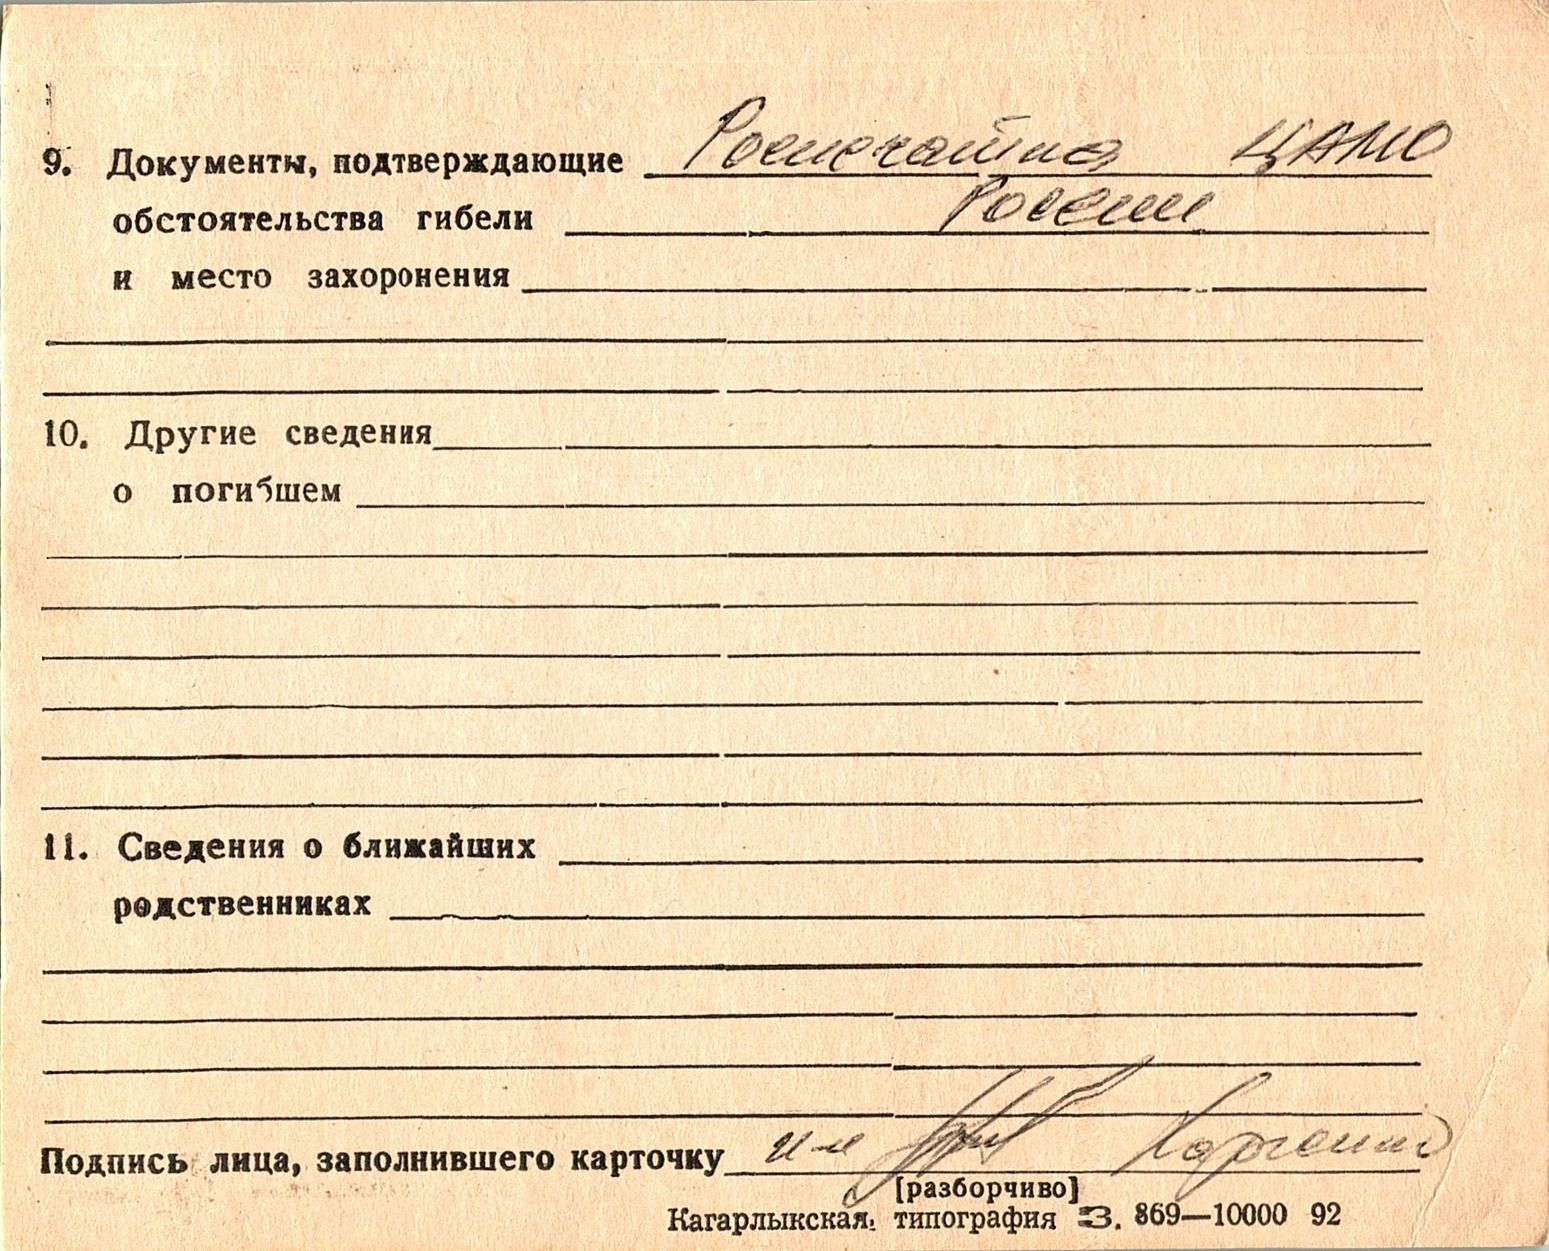 9. Документы, подтверждающие Роспечатка ЦАМО
обстоятельства гибели России
и место захоронения
10. Другие сведения
о погибшем
11. Сведения о ближайших
родственниках
Подпись лица, заполнившего карточку
[разборчиво]
Кагарлыкская типография З. 869—10000 92